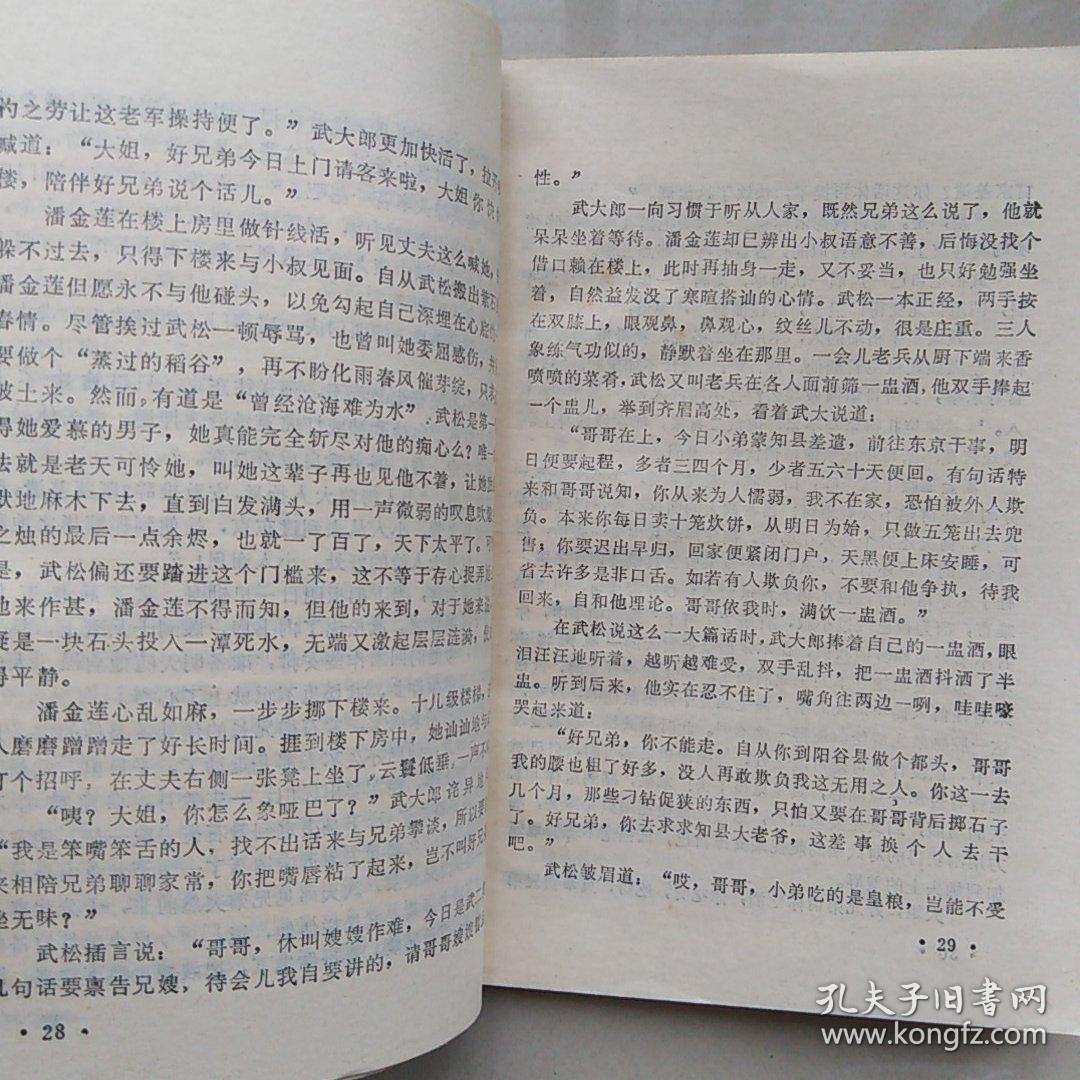 之劳让这老军操持便了。”武大郎更加快活了，拉开
喊道：“大姐，好兄弟今日上门请客来啦，大姐你快
楼，陪伴好兄弟说个话儿。”
潘金莲在楼上房里做针线活，听见丈夫这么喊她，
躲不过去，只得下楼来与小叔见面。自从武松搬出紫石
潘金莲但愿永不与他碰头，以免勾起自己深埋在心底的
春情。尽管挨过武松一顿辱骂，也曾叫她委屈感伤，并
要做个“蒸过的稻谷”，再不盼化雨春风催芽绽，只求
破土来。然而，有道是“曾经沧海难为水”．武松是第一
得她爱慕的男子，她真能完全斩尽对他的痴心么？唯一
去就是老天可怜她，叫她这辈子再也见他不着，让她
默地麻木下去，直到白发满头，用一声微弱的叹息吹
之烛的最后一点余烬，也就一了百了，天下太平了。可
是，武松偏还要踏进这个门槛来，这不等于存心捉弄
他来作甚，潘金莲不得而知，但他的来到，对于她来
疑是一块石头投入一潭死水，无端又激起层层涟漪，使
得平静。
潘金莲心乱如麻，一步步挪下楼来。十几级楼梯，
人磨磨蹭蹭走了好长时间。捱到楼下房中，她讪讪地与
打个招呼，在丈夫右侧一张凳上坐了，云鬟低垂，一声不
“咦？大姐，你怎么象哑巴了？”武大郎诧异地
“我是笨嘴笨舌的人，找不出话来与兄弟攀谈，所以要
来相陪兄弟聊聊家常，你把嘴唇粘了起来，岂不叫好兄
坐无味？”
武松插言说：“哥哥，休叫嫂嫂作难，今日是武二
几句话要禀告兄嫂，待会儿我自要讲的，请哥哥嫂嫂
• 28 •
性。”
武大郎一向习惯于听从人家，既然兄弟这么说了，他就
呆呆坐着等待。潘金莲却已辨出小叔语意不善，后悔没找个
借口赖在楼上，此时再抽身一走，又不妥当，也只好勉强坐
着，自然益发没了寒暄搭讪的心情。武松一本正经，两手按
在双膝上，眼观鼻，鼻观心，纹丝儿不动，很是庄重。三人
象练气功似的，静默着坐在那里。一会儿老兵从厨下端来香
喷喷的菜肴，武松又叫老兵在各人面前筛一盅酒，他双手捧起
一个盅儿，举到齐眉高处，看着武大说道：
“哥哥在上，今日小弟蒙知县差遣，前往东京干事，明
日便要起程，多者三四个月，少者五六十天便回。有句话特
来和哥哥说知，你从来为人懦弱，我不在家，恐怕被外人欺
负。本来你每日卖十笼炊饼，从明日为始，只做五笼出去兜
售；你要迟出早归，回家便紧闭门户，天黑便上床安睡，可
省去许多是非口舌。如若有人欺负你，不要和他争执，待我
回来，自和他理论。哥哥依我时，满饮一盅酒。”
在武松说这么一大篇话时，武大郎捧着自己的一盅酒，眼
泪汪汪地听着，越听越难受，双手乱抖，把一盅酒抖洒了半
盅。听到后来，他实在忍不住了，嘴角往两边一咧，哇哇嚎
哭起来道：
“好兄弟，你不能走。自从你到阳谷县做个都头，哥哥
我的腰也粗了好多，没人再敢欺负我这无用之人。你这一去
几个月，那些刁钻促狭的东西，只怕又要在哥哥背后掷石子
了。好兄弟，你去求求知县大老爷，这差事换个人去干
吧。”
武松皱眉道：“哎，哥哥，小弟吃的是皇粮，岂能不受
• 29 •
孔夫子旧书网
www.kongfz.com